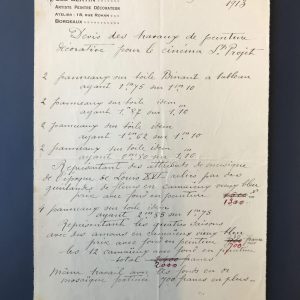 Artiste Peintre Décorateur
Atelier : 18, rue Rohan
Bordeaux
1913
Devis des travaux de peinture
décorative pour le cinéma St Projet
2 panneaux sur toile Binant à tableau
ayant 1m75 sur 1m10
2 panneaux sur toile idem
ayant 1m87 sur 1,10
2 panneaux sur toile idem
ayant 1m62 sur 1m10
2 panneaux sur toile idem
ayant 1m50 sur 1,10
Représentant des attributs de musique
de l'époque de Louis XVI reliés par des
guirlandes de fleurs en camaïeux vieux bleu
prix avec fond en peinture
1300
4 panneaux sur toile idem
ayant 2m55 sur 1m75
Représentant les quatre saisons
avec des amours en camaïeux vieux bleu
prix avec fond en peinture 700 francs
les 12 camaïeux avec fond en peinture
total francs
même travail avec les fonds en or
mosaïque patiné 700 francs en plus